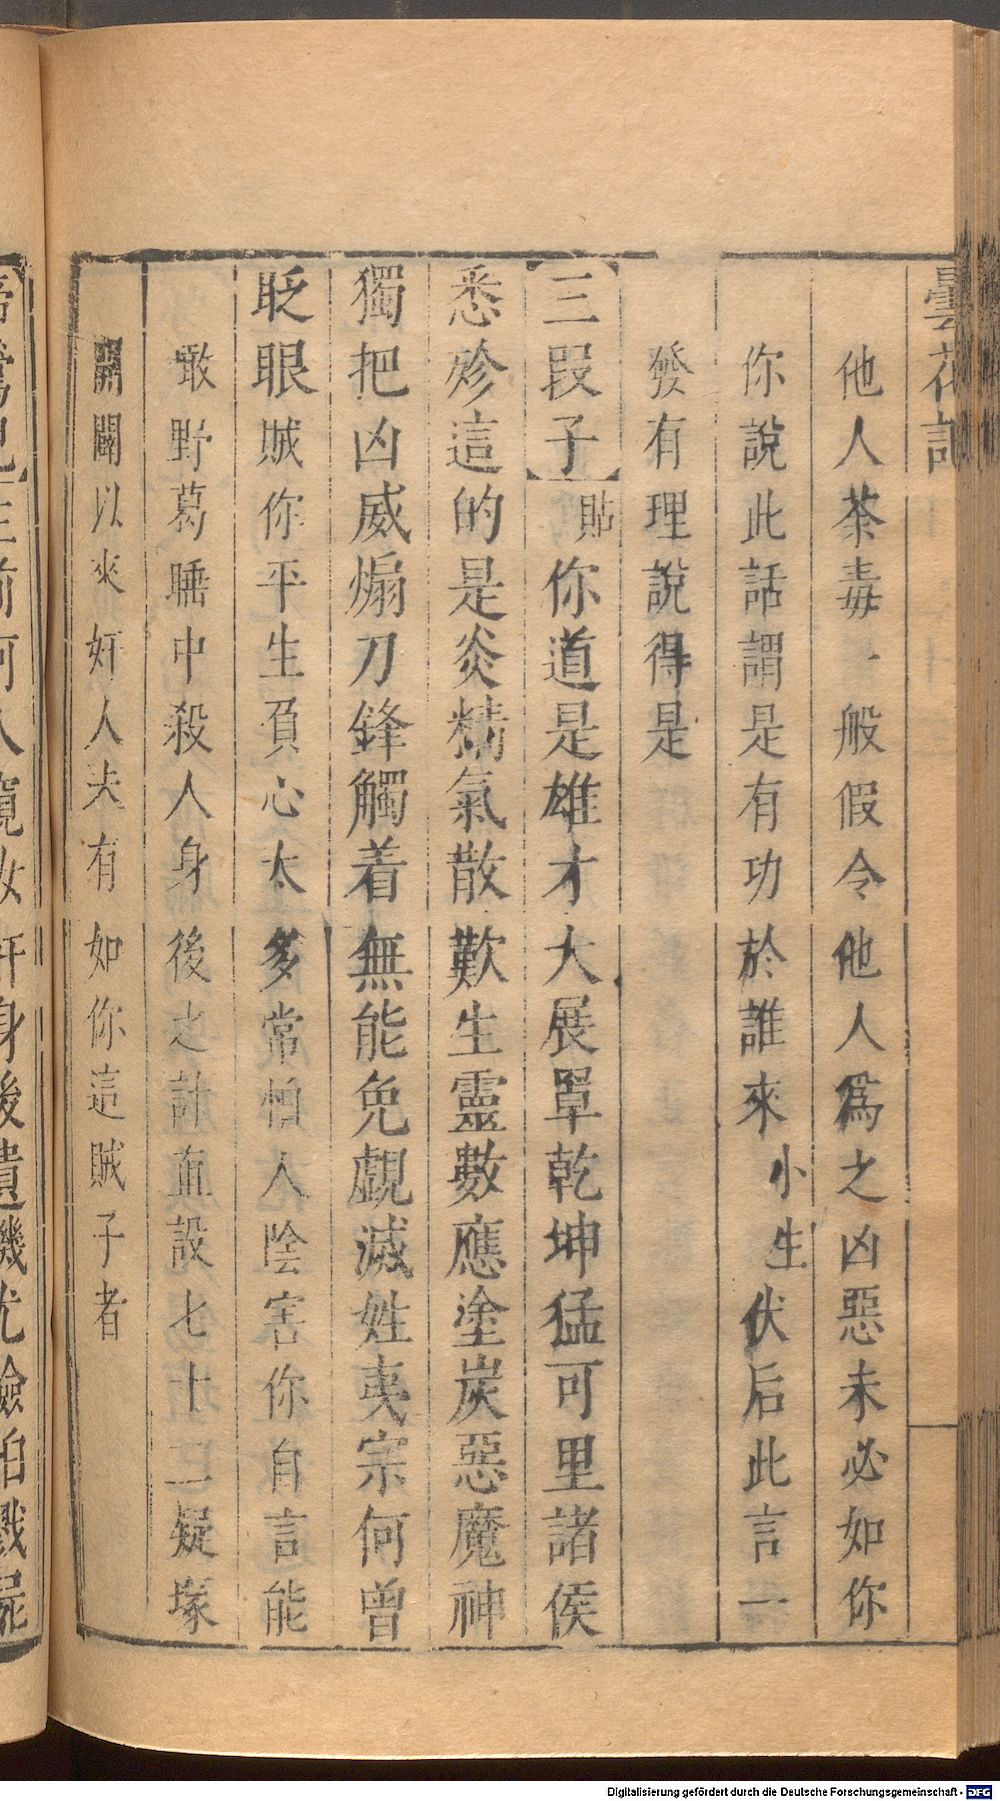 曇花記
他人荼毒一般假令他人爲之凶惡未必如你
你說此話謂是有功於誰來小生伏后此言一
發有理說得是
【三叚子】貼你道是雄才大展單乾坤猛可里諸侯
悉殄這的是炎精氣散歎生靈數應塗炭惡魔神
獨把凶威煽刀鋒觸着無能免覷滅姓夷宗何曾
眨眼賊你平生負心太多常怕人陰害你自言能
噉野葛睡中殺人身後之計直設七十二疑塚
開闢以來奸人未有如你這賊子者
鶯兒】生前何人奸身後遺機尤險怕戮屍
Digitalisierung gefördert durch die Deutsche Forschungsgemeinschaft - DFG